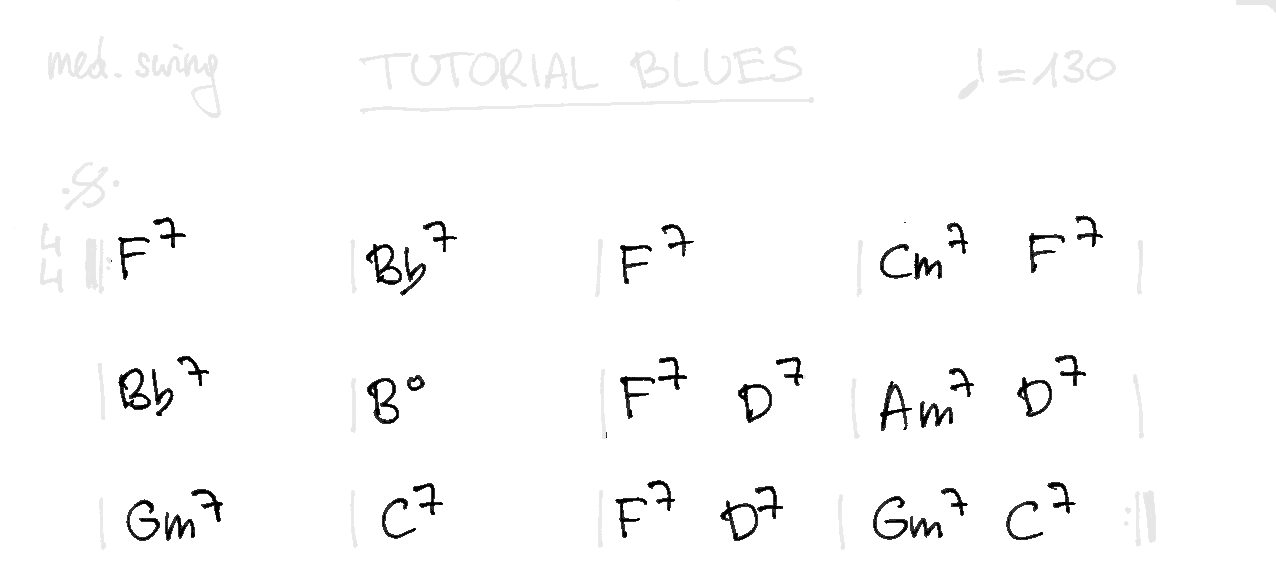 med. swing TUTORIAL BLUES ♩=130
4
4
F7 | Bb7 | F7 | Cm7 F7 |
| Bb7 | B° | F7 D7 | Am7 D7 |
| Gm7 | C7 | F7 D7 | Gm7 C7 :||